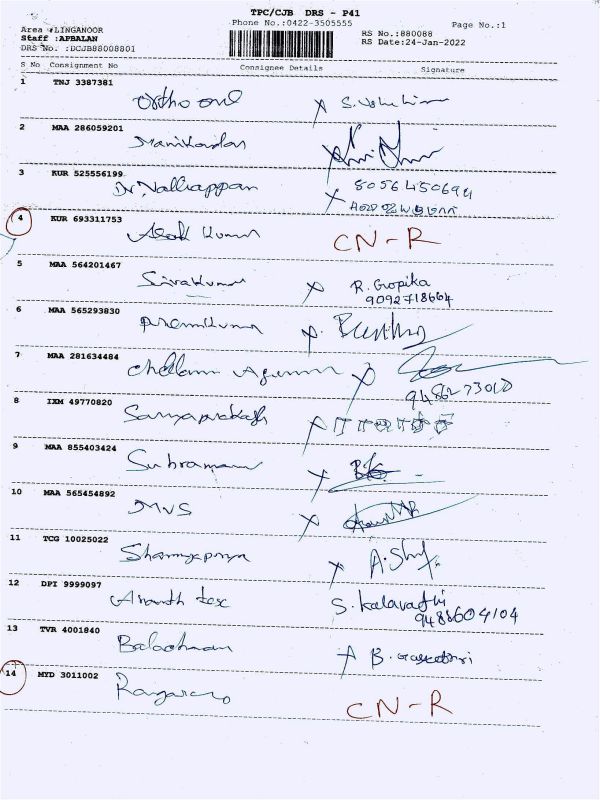 TPC/CJB DRS - P41
Phone No.:0422-3505555
Page No.:1
Area :LINGANOOR
Staff :APBALAN
DRS No. :DCJB88008801
RS No.:880088
RS Date:24-Jan-2022
S No Consignment No Consignee Details Signature
1 TNJ 3387381
Ortho one X
2 MAA 286059201
Manikandan
3 KUR 525556199
Dr. Nalliappan X 8056450694
4 KUR 693311753
Asok Kumar CN-R
5 MAA 564201467
Sivakumar X R. Gopika
9092718664
6 MAA 565293830
Premkumar X
7 MAA 281634484
Chellam X
9486273010
8 IXM 49770820
Suryaprakash X
9 MAA 855403424
Subramani X
10 MAA 565454892
MVS X
11 TCG 10025022
Sharmyapriya X
12 DPI 9999097
Ananth tex S. Kalavathi
9488604104
13 TVR 4001840
Balachman X B.
14 MYD 3011002
CN-R